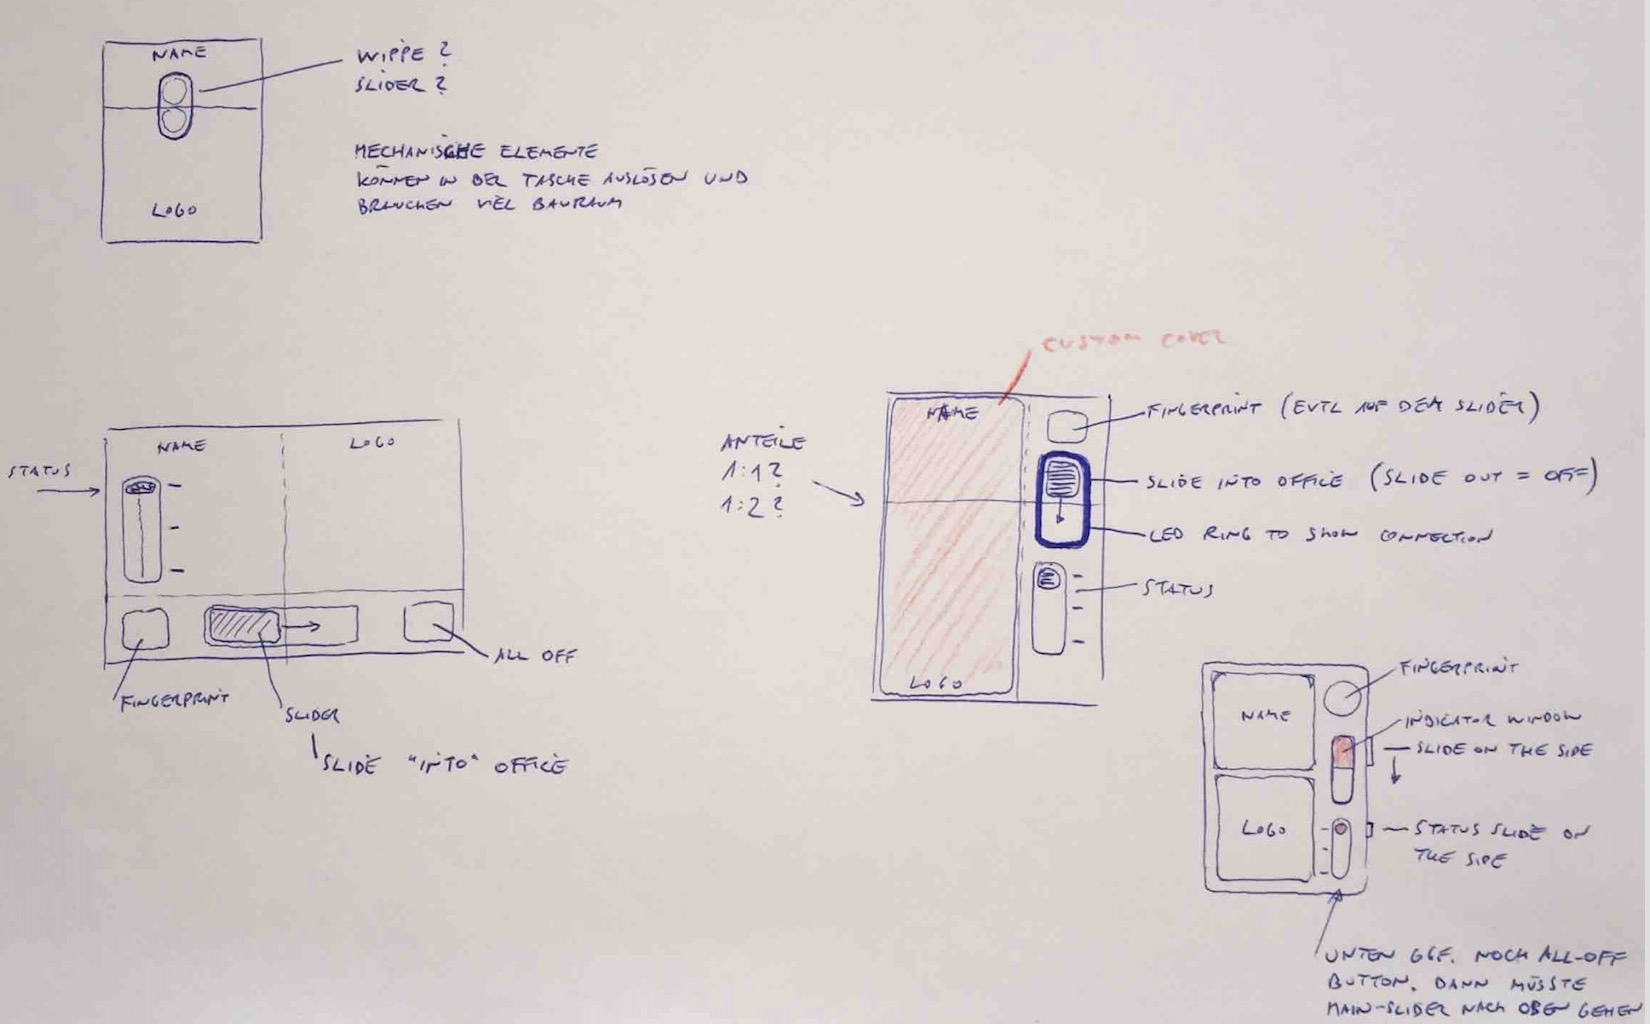 NAME
WIPPE ?
SLIDER ?
MECHANISCHE ELEMENTE
KÖNNEN IN DER TASCHE AUSLÖSEN UND
BRAUCHEN VIEL BAURAUM
LOGO
CUSTOM COVER
NAME
LOGO
STATUS
FINGERPRINT
SLIDER
SLIDE "INTO" OFFICE
ALL OFF
ANTEILE
1:1?
1:2?
NAME
FINGERPRINT (EVTL AUF DEM SLIDER)
SLIDE INTO OFFICE (SLIDE OUT = OFF)
LED RING TO SHOW CONNECTION
STATUS
LOGO
FINGERPRINT
NAME
INDICATOR WINDOW
SLIDE ON THE SIDE
LOGO
STATUS SLIDE ON
THE SIDE
UNTEN GGF. NOCH ALL-OFF
BUTTON. DANN MÜSSTE
MAIN-SLIDER NACH OBEN GEHEN